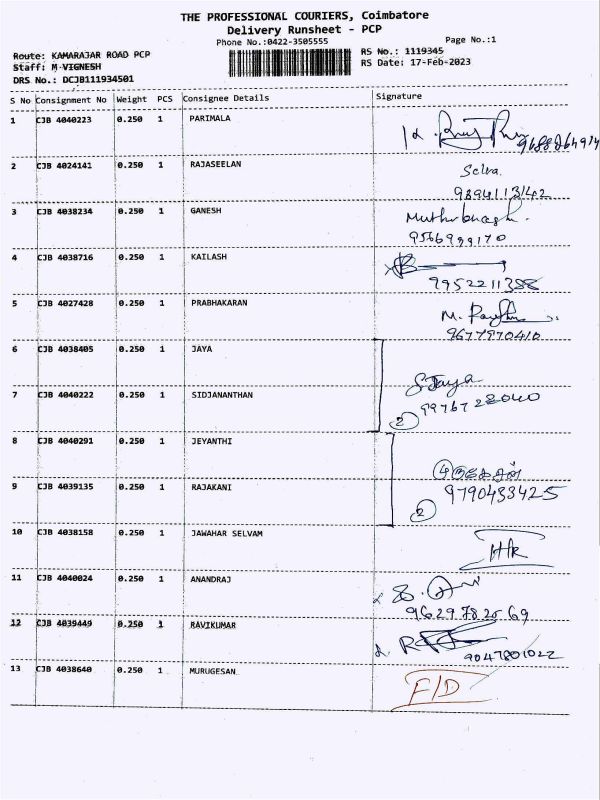 THE PROFESSIONAL COURIERS, Coimbatore
Delivery Runsheet - PCP
Phone No.:0422-3505555 Page No.:1
Route: KAMARAJAR ROAD PCP RS No.: 1119345
Staff: M VIGNESH RS Date: 17-Feb-2023
DRS No.: DCJB111934501
S No Consignment No Weight PCS Consignee Details Signature
1 CJB 4040223 0.250 1 PARIMALA
2 CJB 4024141 0.250 1 RAJASEELAN Selva
9894111342
3 CJB 4038234 0.250 1 GANESH
9566999170
4 CJB 4038716 0.250 1 KAILASH
9952211388
5 CJB 4027428 0.250 1 PRABHAKARAN
9677970410
6 CJB 4038405 0.250 1 JAYA
S Jaya
7 CJB 4040222 0.250 1 SIDJANANTHAN 9976728040
2
8 CJB 4040291 0.250 1 JEYANTHI
9 CJB 4039135 0.250 1 RAJAKANI 9790433425
2
10 CJB 4038158 0.250 1 JAWAHAR SELVAM
11 CJB 4040024 0.250 1 ANANDRAJ
9629782569
12 CJB 4039449 0.250 1 RAVIKUMAR
9047801022
13 CJB 4038640 0.250 1 MURUGESAN F/D